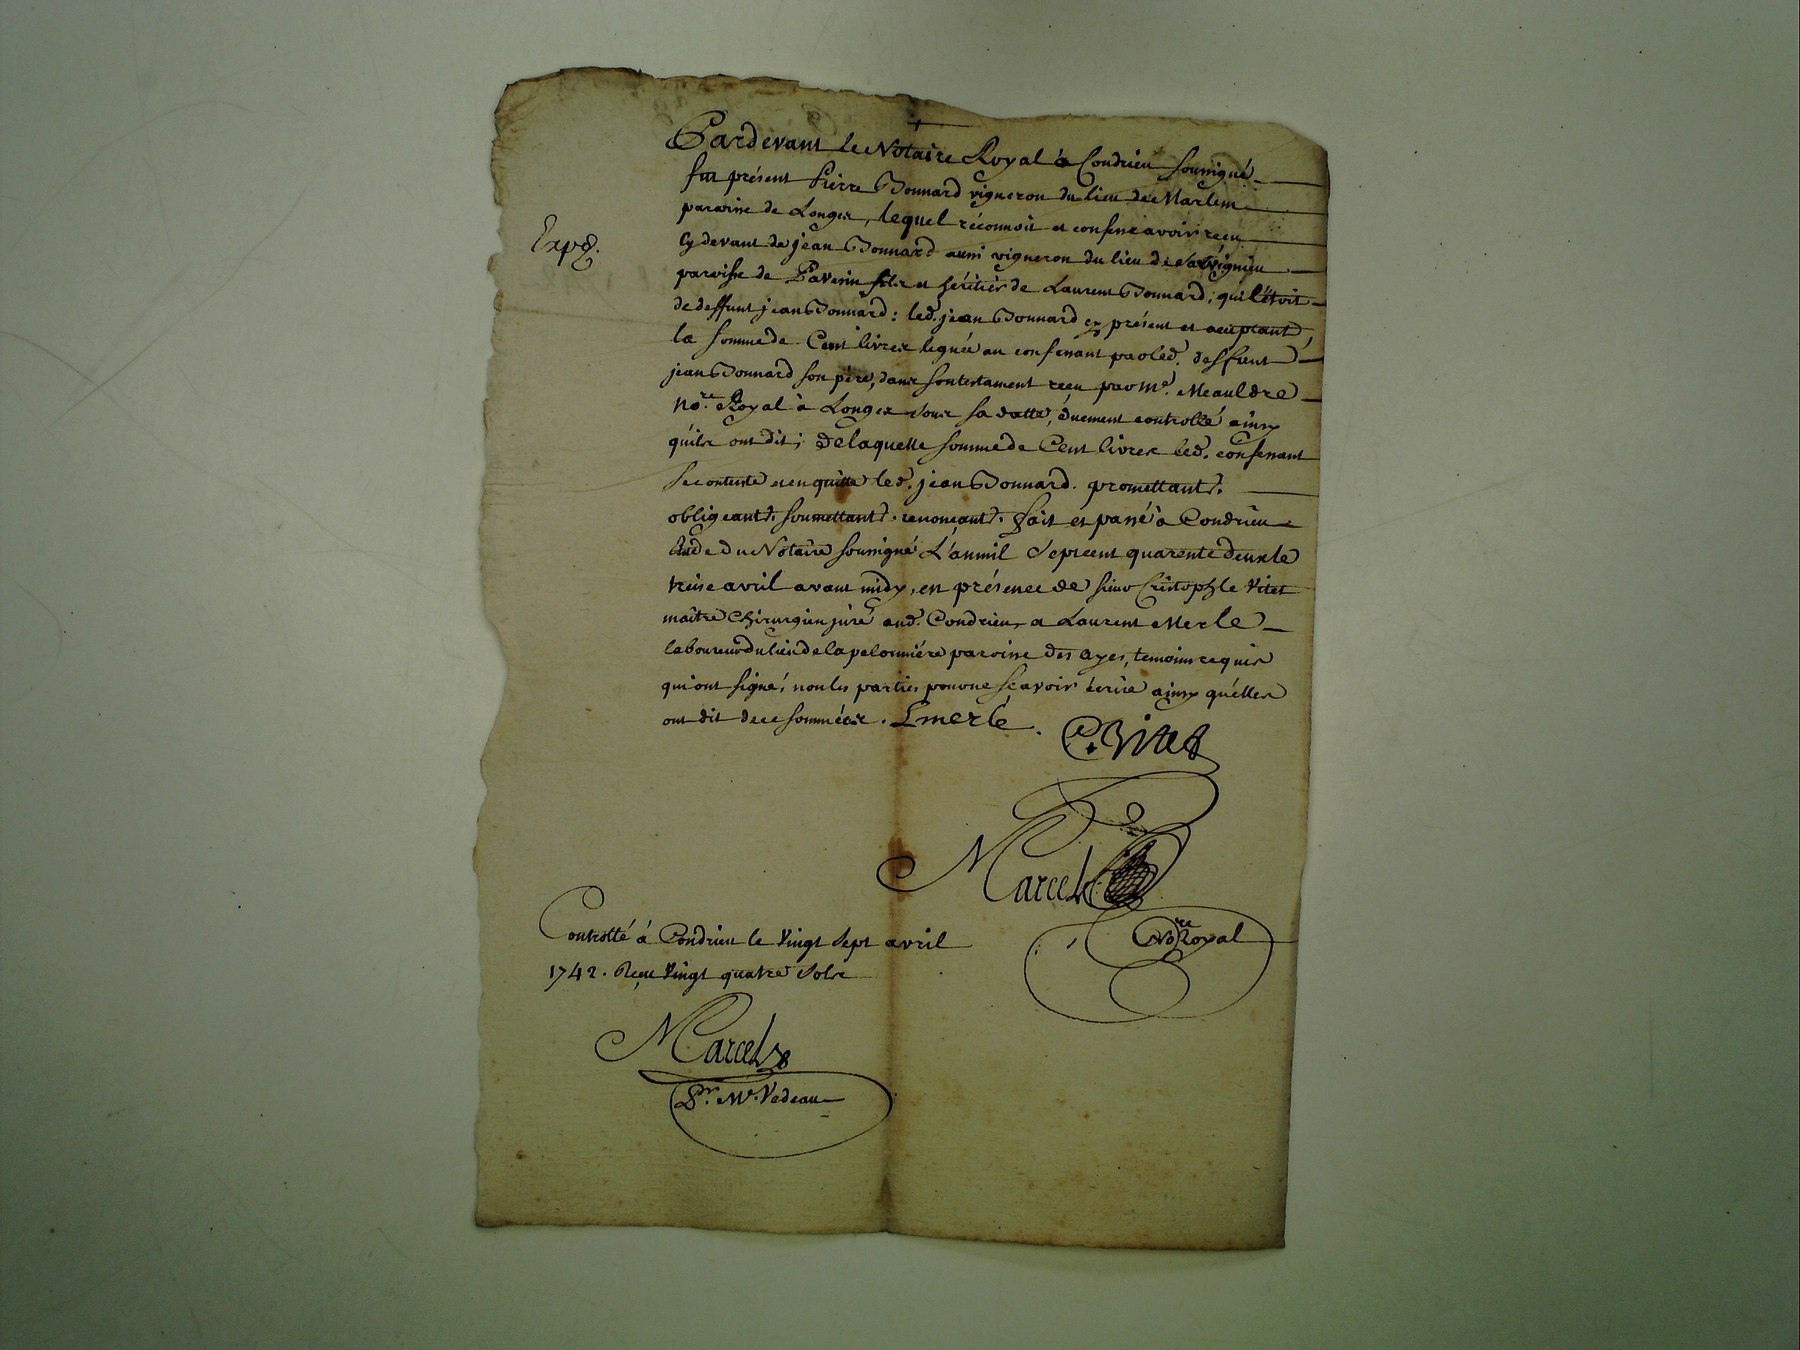 Pardevant le Notaire Royal à Condrieu soussigné
fut présent Pierre Bonnard vigneron du lieu de Marlin
paroisse de Longes, lequel réconnoit et confesse avoir reçu
Expd.
cy devant de jean Bonnard aussi vigneron du lieu de
paroisse de Pavesin fils et héritier de Laurent Bonnard, qui l'étoit
de deffunt jean Bonnard: led. jean Bonnard cy présent et acceptant,
la somme de Cent livres leguée au confessant par led. deffunt
jean Bonnard son père, dans son testament reçu par Me. Meauldre
Nore. Royal à Longes sous sa datte, duement controllé ainsy
qu'ils ont dit; de laquelle somme de Cent livres led. confessant
se contente et en quitte led. jean Bonnard. promettant &.
obligeant &. soumettant &. renonçant &. fait et passé à Condrieu
Etude du Notaire soussigné L'an mil sept cent quarente deux le
treise avril avant midy, en présence de sieur Cristophle Vitet
maître Chirurgien juré aud. Condrieu, & Laurent Merle
laboureur du lieu de la pelonnière paroisse des ayes, temoins requis
qui ont signé, non les parties pour ne sçavoir écrire ainsy qu'elles
ont dit de ce sommées. Lmerle.
C. Vitet
Marcel
Nore Royal
Controllé à Condrieu le Vingt sept avril
1742. Reçu Vingt quatre sols
Marcel
Pr. Mr. Vedeau